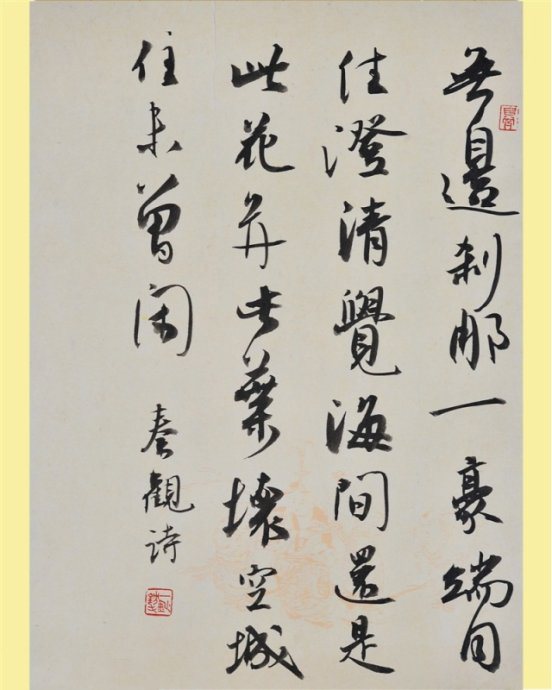 無邊刹那一豪端同
住澄清覺海間還是
此花并此葉壞空城
住未曾閑
秦觀詩